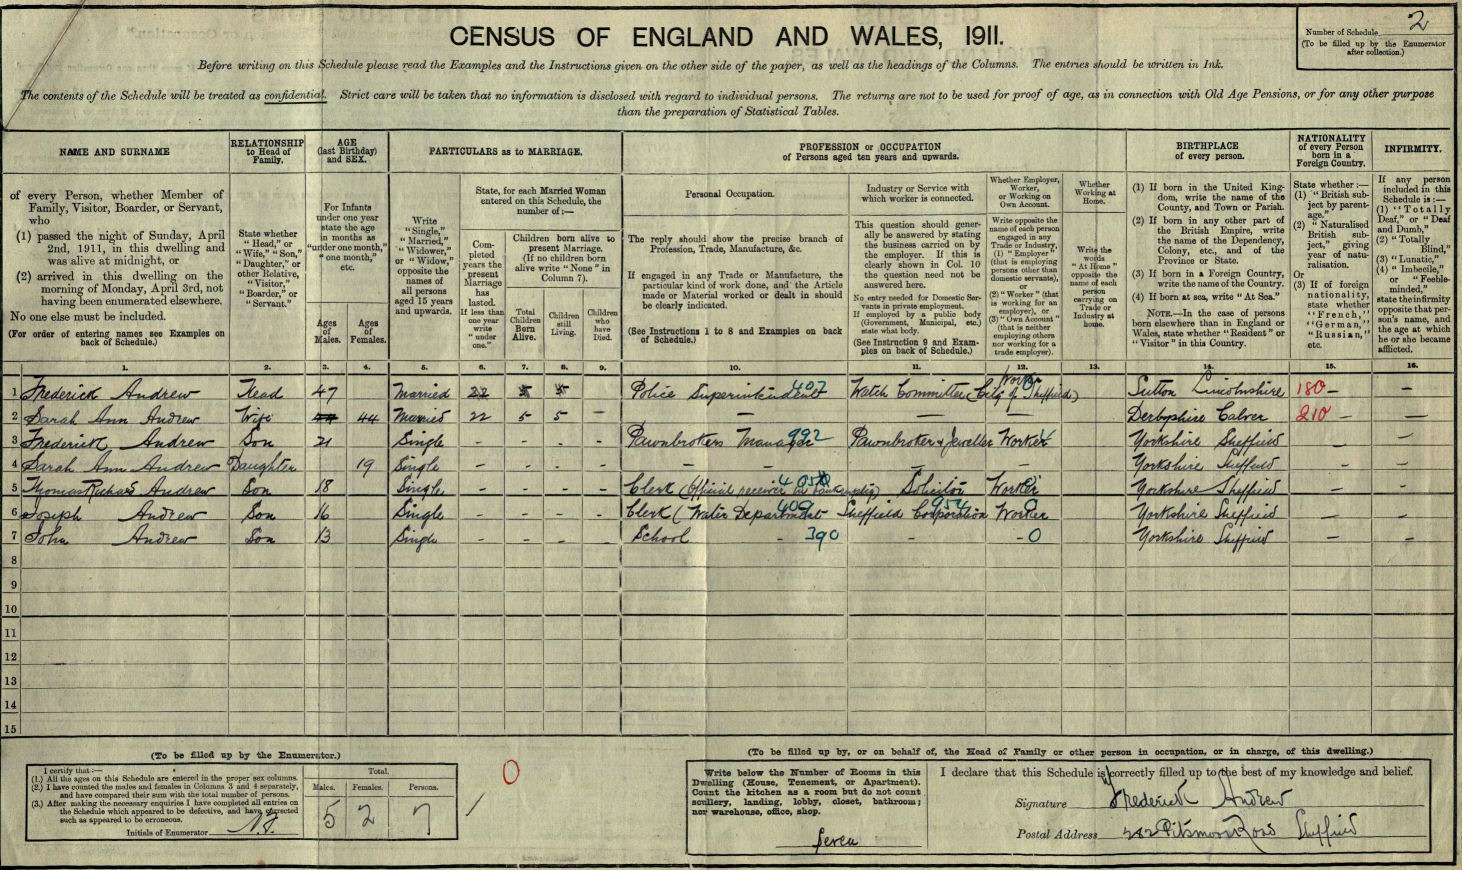 CENSUS OF ENGLAND AND WALES, 1911.
Number of Schedule 2
(To be filled up by the Enumerator
after collection.)
Before writing on this Schedule please read the Examples and the Instructions given on the other side of the paper, as well as the headings of the Columns. The entries should be written in Ink.
The contents of the Schedule will be treated as confidential. Strict care will be taken that no information is disclosed with regard to individual persons. The returns are not to be used for proof of age, as in connection with Old Age Pensions, or for any other purpose
than the preparation of Statistical Tables.
NAME AND SURNAME
of every Person, whether Member of
Family, Visitor, Boarder, or Servant,
who
(1) passed the night of Sunday, April
2nd, 1911, in this dwelling and
was alive at midnight, or
(2) arrived in this dwelling on the
morning of Monday, April 3rd, not
having been enumerated elsewhere.
No one else must be included.
(For order of entering names see Examples on
back of Schedule.)
RELATIONSHIP
to Head of
Family.
State whether
"Head," or
"Wife," "Son,"
"Daughter," or
other Relative,
"Visitor,"
"Boarder," or
"Servant."
AGE
(last Birthday)
and SEX.
For Infants
under one year
state the age
in months as
"under one month,"
"one month,"
etc.
Ages
of
Males.
Ages
of
Females.
PARTICULARS as to MARRIAGE.
Write
"Single,"
"Married,"
"Widower,"
or "Widow,"
opposite the
names of
all persons
aged 15 years
and upwards.
State, for each Married Woman
entered on this Schedule, the
number of:—
Com-
pleted
years the
present
Marriage
has
lasted.
If less than
one year
write
"under
one."
Children born alive to
present Marriage.
(If no children born
alive write "None" in
Column 7).
Total
Children
Born
Alive.
Children
still
Living.
Children
who
have
Died.
PROFESSION or OCCUPATION
of Persons aged ten years and upwards.
Personal Occupation.
The reply should show the precise branch of
Profession, Trade, Manufacture, &c.
If engaged in any Trade or Manufacture, the
particular kind of work done, and the Article
made or Material worked or dealt in should
be clearly indicated.
(See Instructions 1 to 8 and Examples on back
of Schedule.)
Industry or Service with
which worker is connected.
This question should gener-
ally be answered by stating
the business carried on by
the employer. If this is
clearly shown in Col. 10
the question need not be
answered here.
No entry needed for Domestic Ser-
vants in private employment.
If employed by a public body
(Government, Municipal, etc.)
state what body.
(See Instruction 9 and Exam-
ples on back of Schedule.)
Whether Employer,
Worker,
or Working on
Own Account.
Write opposite the
name of each person
engaged in any
Trade or Industry,
(1) "Employer"
(that is employing
persons other than
domestic servants),
or
(2) "Worker" (that
is working for an
employer), or
(3) "Own Account"
(that is neither
employing others
nor working for a
trade employer).
Whether
Working at
Home.
Write the
words
"At Home"
opposite the
name of each
person
carrying on
Trade or
Industry at
home.
BIRTHPLACE
of every person.
(1) If born in the United King-
dom, write the name of the
County, and Town or Parish.
(2) If born in any other part of
the British Empire, write
the name of the Dependency,
Colony, etc., and of the
Province or State.
(3) If born in a Foreign Country,
write the name of the Country.
(4) If born at sea, write "At Sea."
NOTE.—In the case of persons
born elsewhere than in England or
Wales, state whether "Resident" or
"Visitor" in this Country.
NATIONALITY
of every Person
born in a
Foreign Country.
State whether:—
(1) "British sub-
ject by parent-
age,"
(2) "Naturalised
British sub-
ject," giving
year of natu-
ralisation.
Or
(3) If of foreign
nationality,
state whether
"French,"
"German,"
"Russian,"
etc.
INFIRMITY.
If any person
included in this
Schedule is:—
(1) "Totally
Deaf," or "Deaf
and Dumb,"
(2) "Totally
Blind,"
(3) "Lunatic,"
(4) "Imbecile,"
or "Feeble-
minded,"
state the infirmity
opposite that per-
son's name, and
the age at which
he or she became
afflicted.
1. 2. 3. 4. 5. 6. 7. 8. 9. 10. 11. 12. 13. 14. 15. 16.
1 Frederick Andrew Head 47 Married 22 5 5 Police Superintendent 407 Watch Committee (City of Sheffield) Worker Sutton Lincolnshire 180 — —
2 Sarah Ann Andrew Wife 44 44 Married 22 5 5 — — — — Derbyshire Calver 210 — —
3 Frederick Andrew Son 21 Single - - - - Pawnbrokers Manager 992 Pawnbroker & Jeweller Worker Yorkshire Sheffield — —
4 Sarah Ann Andrew Daughter 19 Single - - - - — — — Yorkshire Sheffield — —
5 Thomas Richard Andrew Son 18 Single - - - - Clerk (Official receiver in bankruptcy) Solicitor Worker Yorkshire Sheffield — —
6 Joseph Andrew Son 16 Single - - - - Clerk (Water Department 409 Sheffield Corporation 954 Worker Yorkshire Sheffield — —
7 John Andrew Son 13 Single - - - - School - 390 - - 0 Yorkshire Sheffield — —
8
9
10
11
12
13
14
15
(To be filled up by the Enumerator.)
I certify that:—
(1.) All the ages on this Schedule are entered in the proper sex columns.
(2.) I have counted the males and females in Columns 3 and 4 separately,
and have compared their sum with the total number of persons.
(3.) After making the necessary enquiries I have completed all entries on
the Schedule which appeared to be defective, and have corrected
such as appeared to be erroneous.
Initials of Enumerator
Total.
Males. Females. Persons.
5 2 7
0
(To be filled up by, or on behalf of, the Head of Family or other person in occupation, or in charge, of this dwelling.)
Write below the Number of Rooms in this
Dwelling (House, Tenement, or Apartment).
Count the kitchen as a room but do not count
scullery, landing, lobby, closet, bathroom;
nor warehouse, office, shop.
Seven
I declare that this Schedule is correctly filled up to the best of my knowledge and belief.
Signature Frederick Andrew
Postal Address 282 Pitsmoor Road Sheffield